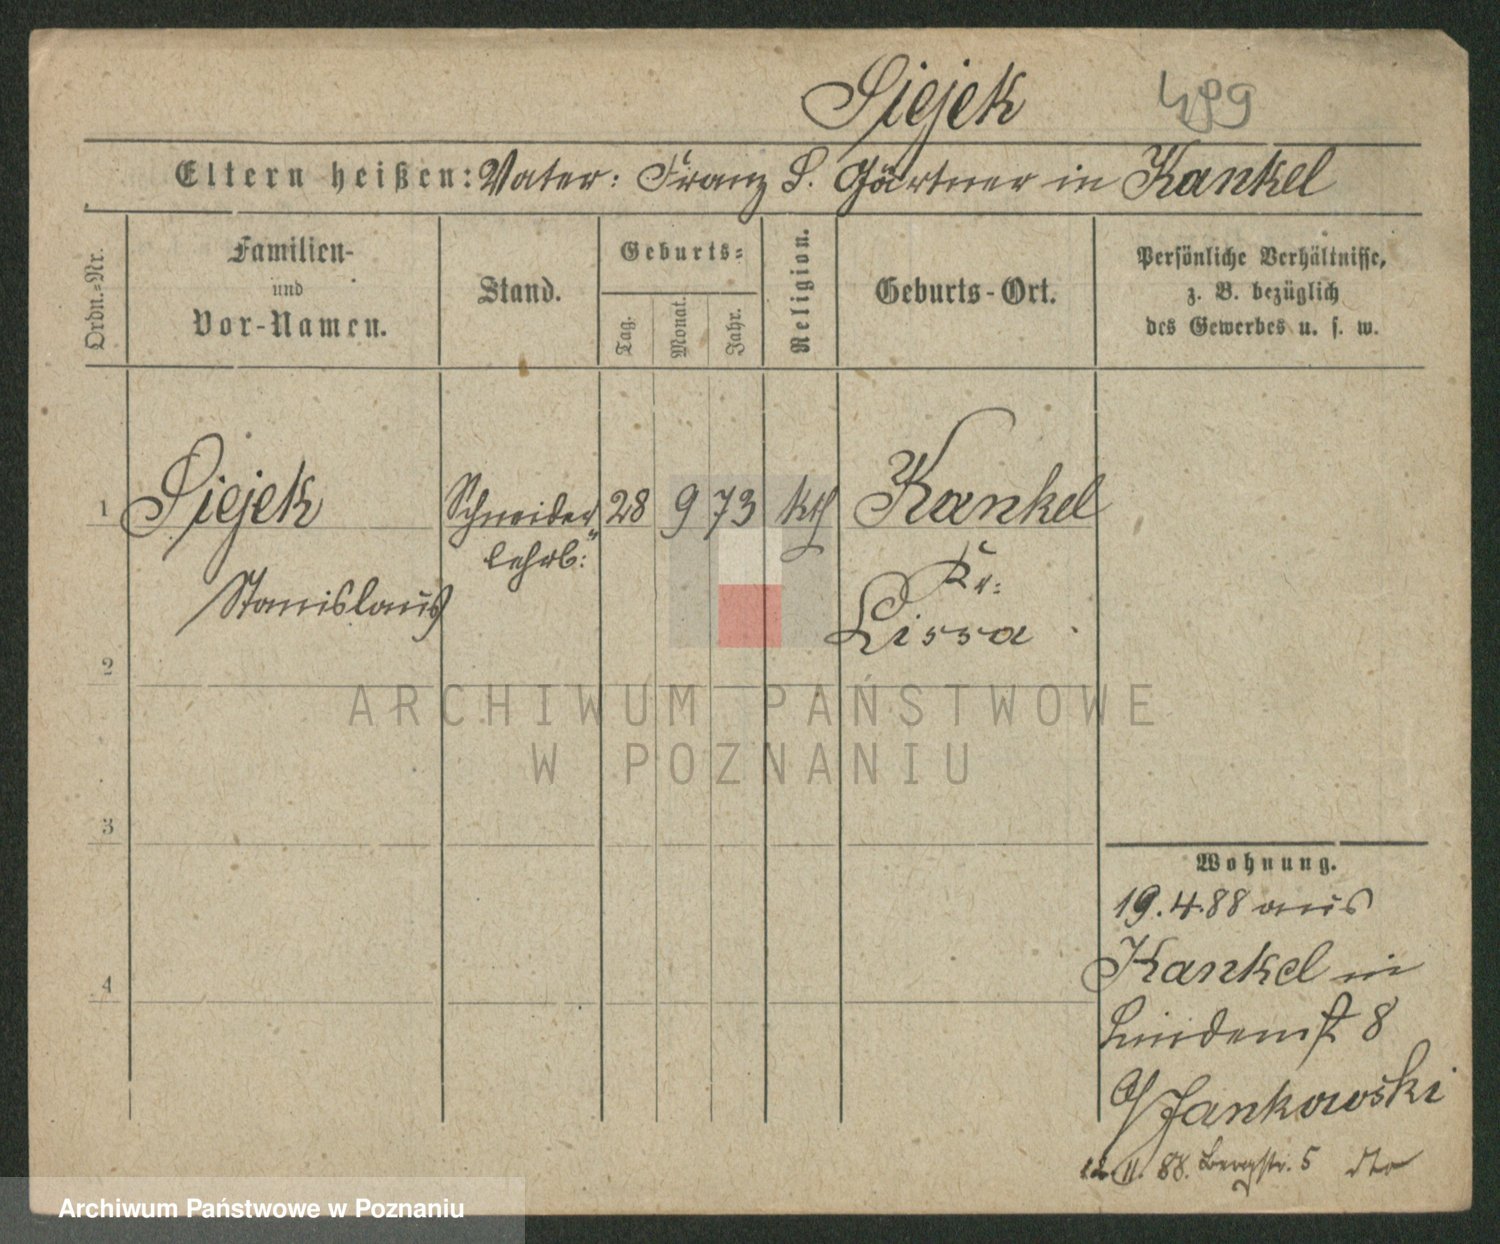 Siejek 489
Eltern heißen: Vater: Franz S. Gärtner in Kankel
Ordn.-Nr.
Familien-
und
Vor-Namen.
Stand.
Geburts-
Tag.
Monat.
Jahr.
Religion.
Geburts-Ort.
Persönliche Verhältnisse,
z. B. bezüglich
des Gewerbes u. s. w.
1 Siejek Schneider 28 9 73 kth Kankel
lehrb: Kr:
Stanislaus Lissa
2
ARCHIWUM PAŃSTWOWE
W POZNANIU
3
Wohnung.
19.4.88 aus
4 Kankel in
Lindenst 8
b/Jankowski
12.11.88. Bergstr. 5 dto
Archiwum Państwowe w Poznaniu